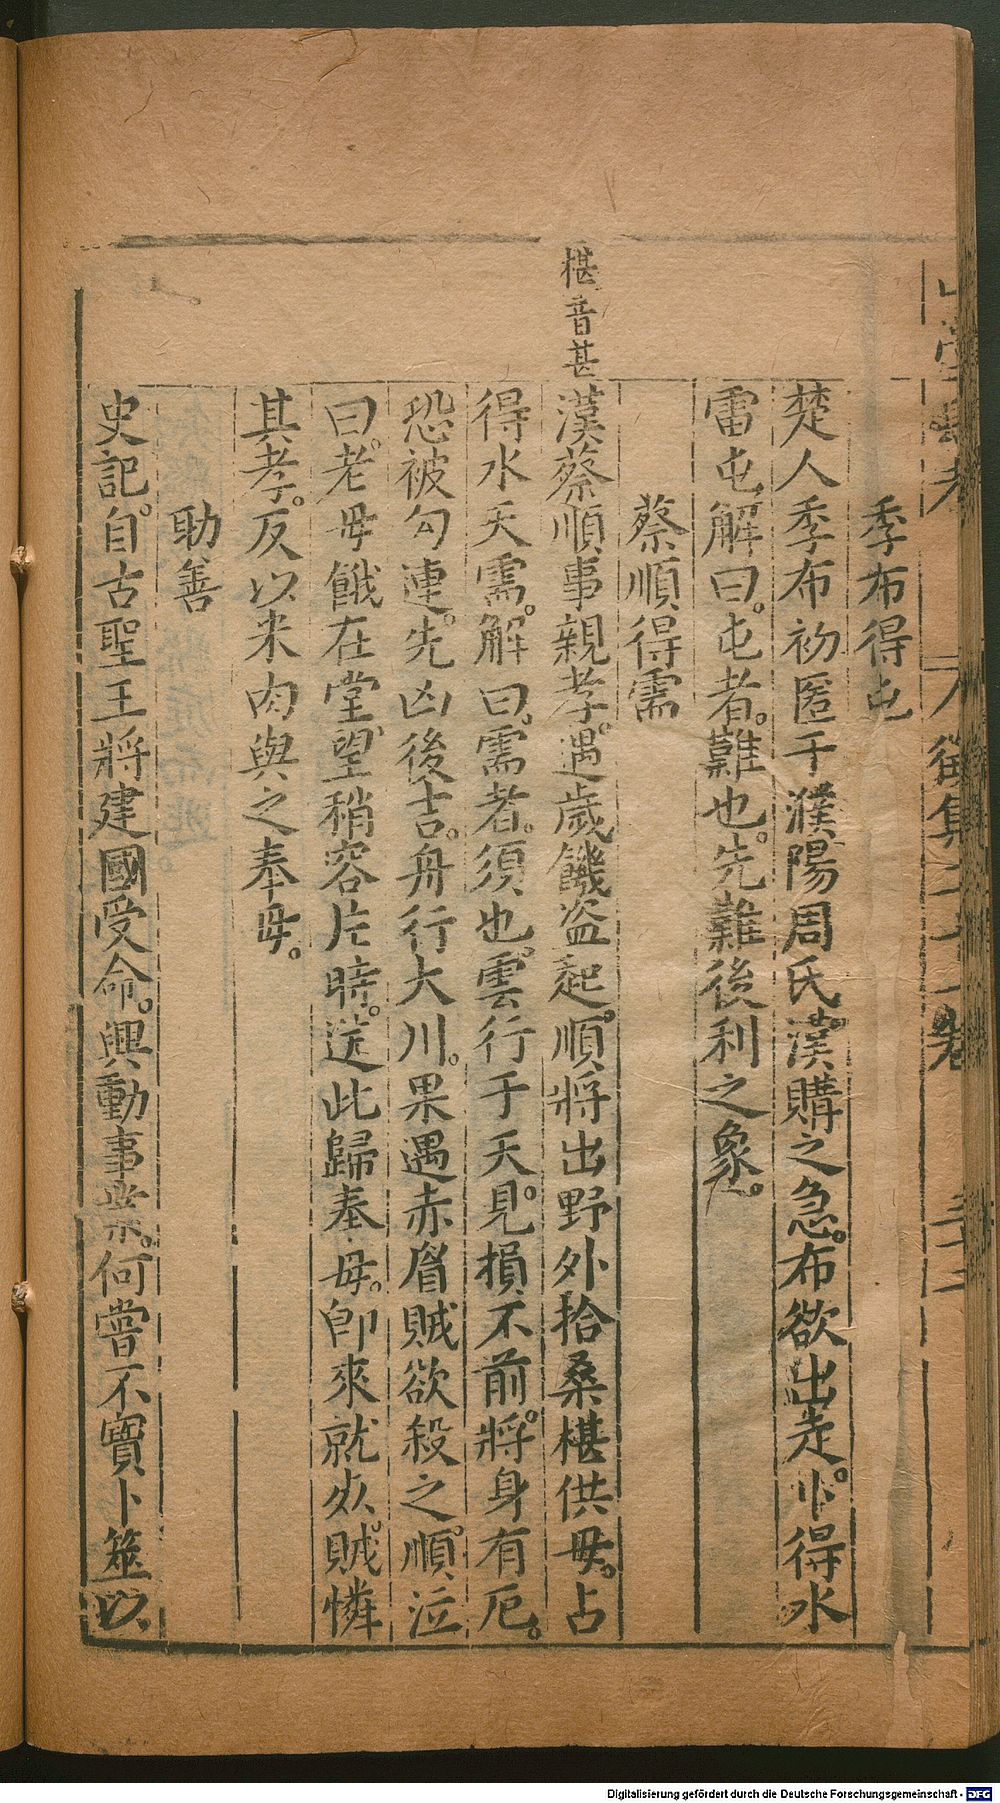 季布得屯
楚人季布初匿于濮陽周氏。漢購之急。布欲出走。卜得水
雷屯解曰。屯者。難也。先難後利之象。
蔡順得需
椹音甚
漢蔡順事親孝。遇歲饑盗起。順將出野外拾桑椹供母。占
得水天需。解曰。需者。須也。雲行于天。見損不前。將身有厄。
恐被勾連。先凶後吉。舟行大川。果遇赤眉賊欲殺之。順泣
曰。老母餓在堂。望稍容片時。送此歸奉母。卽來就死。賊憐
其孝。反以米肉與之奉母。
助善
史記。自古聖王將建國受命。興動事業。何嘗不寶卜筮以
Digitalisierung gefördert durch die Deutsche Forschungsgemeinschaft - DFG